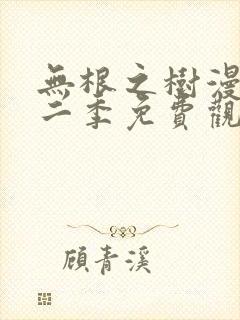 無根之樹漫
二季免費觀
顧青溪